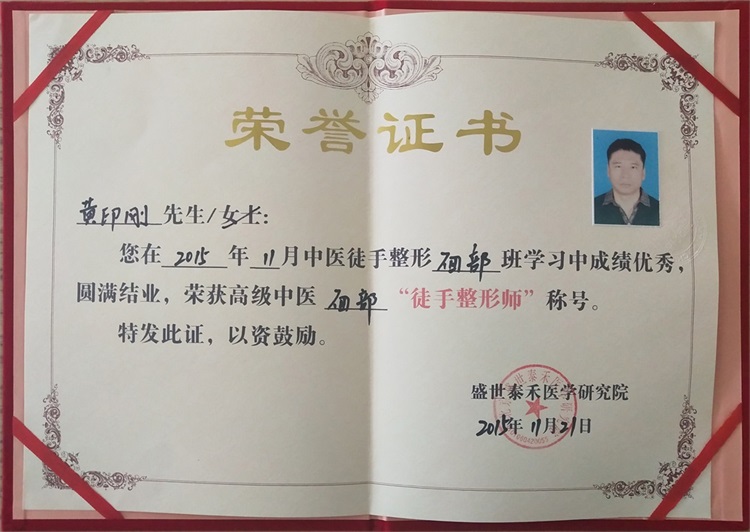 荣誉证书
黄印刚 先生/女士:
您在 2015 年 11月中医徒手整形 面部 班学习中成绩优秀，
圆满结业，荣获高级中医 面部 “徒手整形师”称号。
特发此证，以资鼓励。
盛世泰禾医学研究院
2015年11月21日